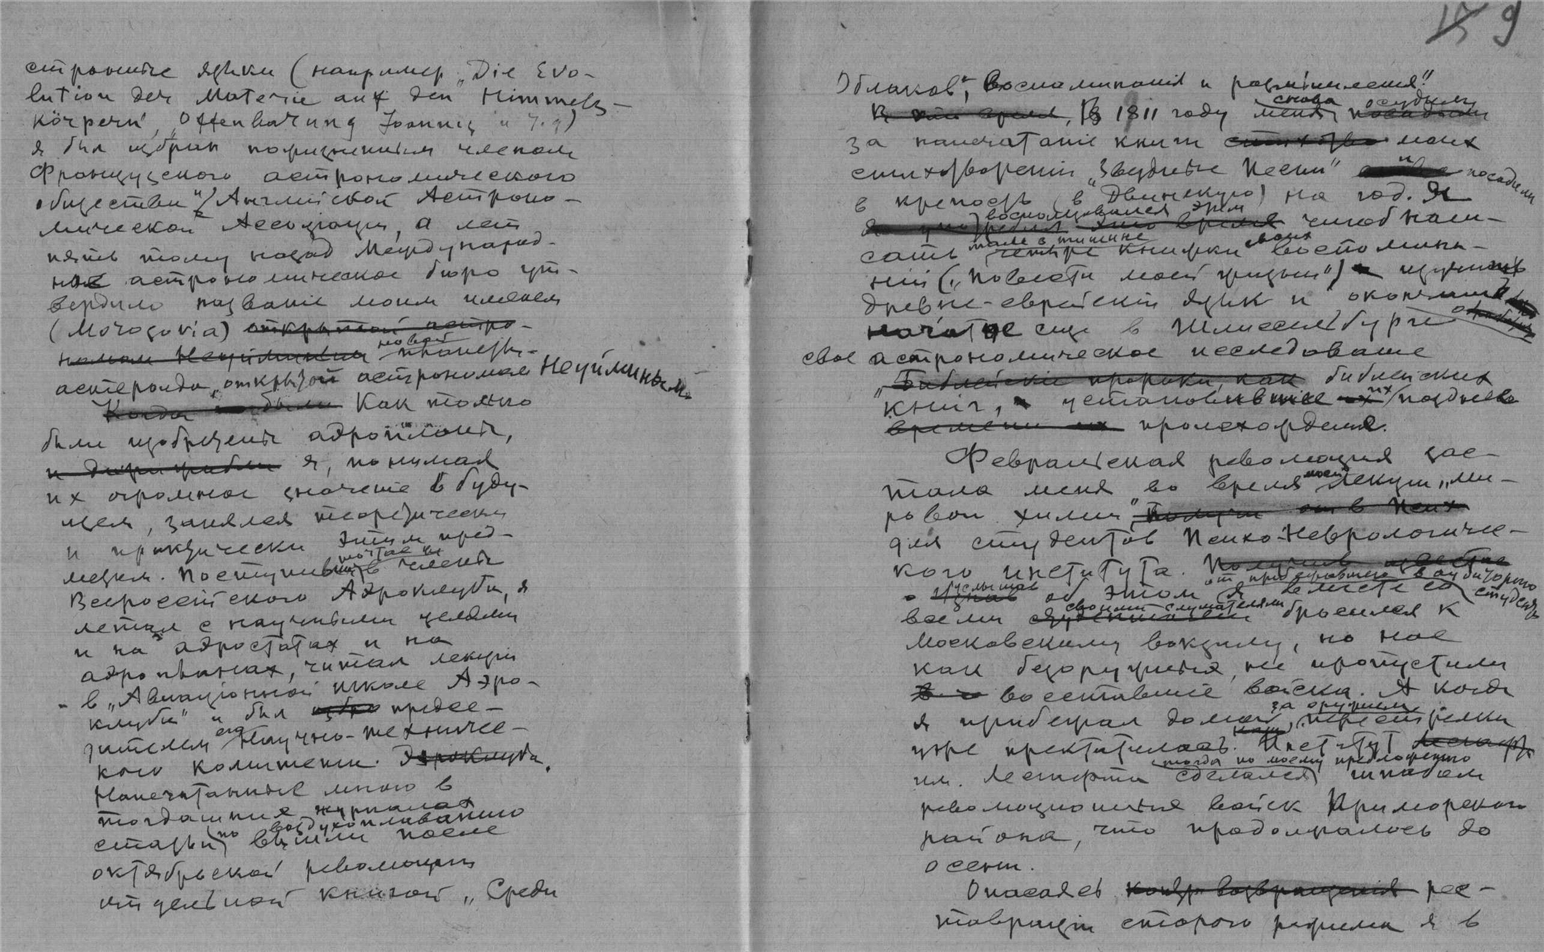 странные языки (например „Die Evo-
lution der Materie auf den Himmels-
körpern“, „Offenbarung Joannis“ и т.д.)
я был избран пожизненным членом
Французского астрономического
общества и Английской Астроно-
мической Ассоциации, а лет
пять тому назад Международ-
ное астрономическое бюро ут-
вердило название моим именем
(Morosovia) открытой астро-
номом Неуйминым новой планеты-
астероида, открытой астрономом Неуйминым.
Когда были Как только
были изобретены аэропланы,
и дирижабли я, понимая
их огромное значение в буду-
щем, занялся теоретически
и практически этим пред-
метом. Поступивши в члены
Всероссийского Аэроклуба, я
летал с научными целями
и на аэростатах и на
аэропланах, читал лекции
в „Авиационной школе Аэро-
клуба“ и был предсе-
дателем его Научно-техничес-
кого комитета. Аэроклуба.
Напечатанные много в
тогдашних журналах
статьи по воздухоплаванию вышли после
октябрьской революции
отдельной книгой „Среди
9
Облаков“, воспоминания и размышления“
В это время, В 1911 году меня снова осудили
за напечатание книги моих
стихотворений „Звездные Песни“ и посадили
в крепость (в Двинскую) на год. Я
воспользовался этим время чтоб напи-
сать там в тишине четыре книжки своих воспомина-
ний („Повести моей жизни“) изучить
древне-еврейский язык и окончить
начатое еще в Шлиссельбурге
свое астрономическое исследование
„Библейские пророки, как библейских
книг, установившее их позднее
времени их происхождение.
Февральская революция зас-
тала меня во время моей лекции „ми-
ровой химии“,
для студентов Психо-Неврологичес-
кого института.
Узнав об этом от прибежавшего в аудиторию студента я вместе со
всеми своими слушателями бросился к
Московскому вокзалу, но нас
как безоружных, не пропустили
восставшие войска. А когда
я прибежал домой за оружием, перестрелка
уже прекратилась. Наш Институт Лесгафта
им. Лесгафта тогда по моему предложению сделался штабом
революционных войск Приморского
района, что продолжалось до
осени.
Опасаясь контр возвращения рес-
таврации старого режима я в